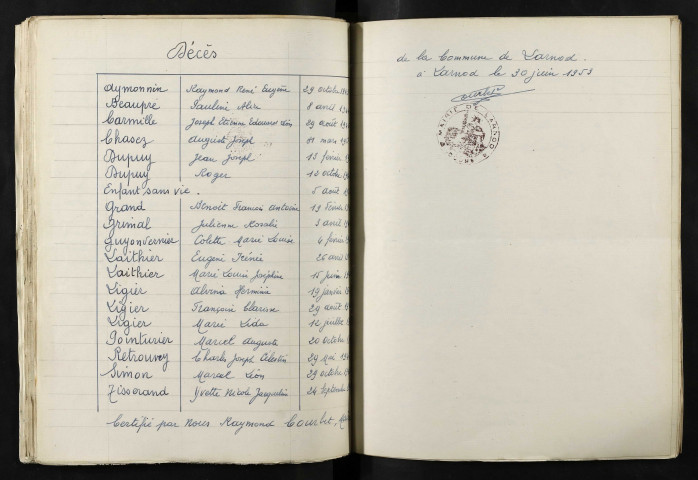 Décès
Aymonnin Raymond René Eugène 29 octobre
Beaupré Pauline Alix 8 avril
Carmille Joseph Etienne Edouard Léon 29 août
Chasez Auguste Joseph 11 mars
Dupuy Jean Joseph 13 février
Dupuy Roger 10 octobre
Enfant sans vie. 5 août
Grand Benoit François Antoine 19 février
Grimal Julienne Rosalie 3 avril
Guyonvernier Colette Marie Louise 4 février
Laithier Eugène Irénée 26 avril
Laithier Marie Louise Joséphine 15 juin
Ligier Alvina Herminia 19 janvier
Ligier Françoise Clarisse 29 août
Ligier Marie Lida 12 juillet
Pointurier Marcel Auguste 20 octobre
Retrouvey Charles Joseph Célestin 29 Mai
Simon Marcel Léon 29 octobre
Tisserand Yvette Nicole Jacqueline 24 septembre
Certifié par Nous Raymond Courbet,
de la Commune de Larnod.
à Larnod le 30 juin 1953
MAIRIE DE LARNOD